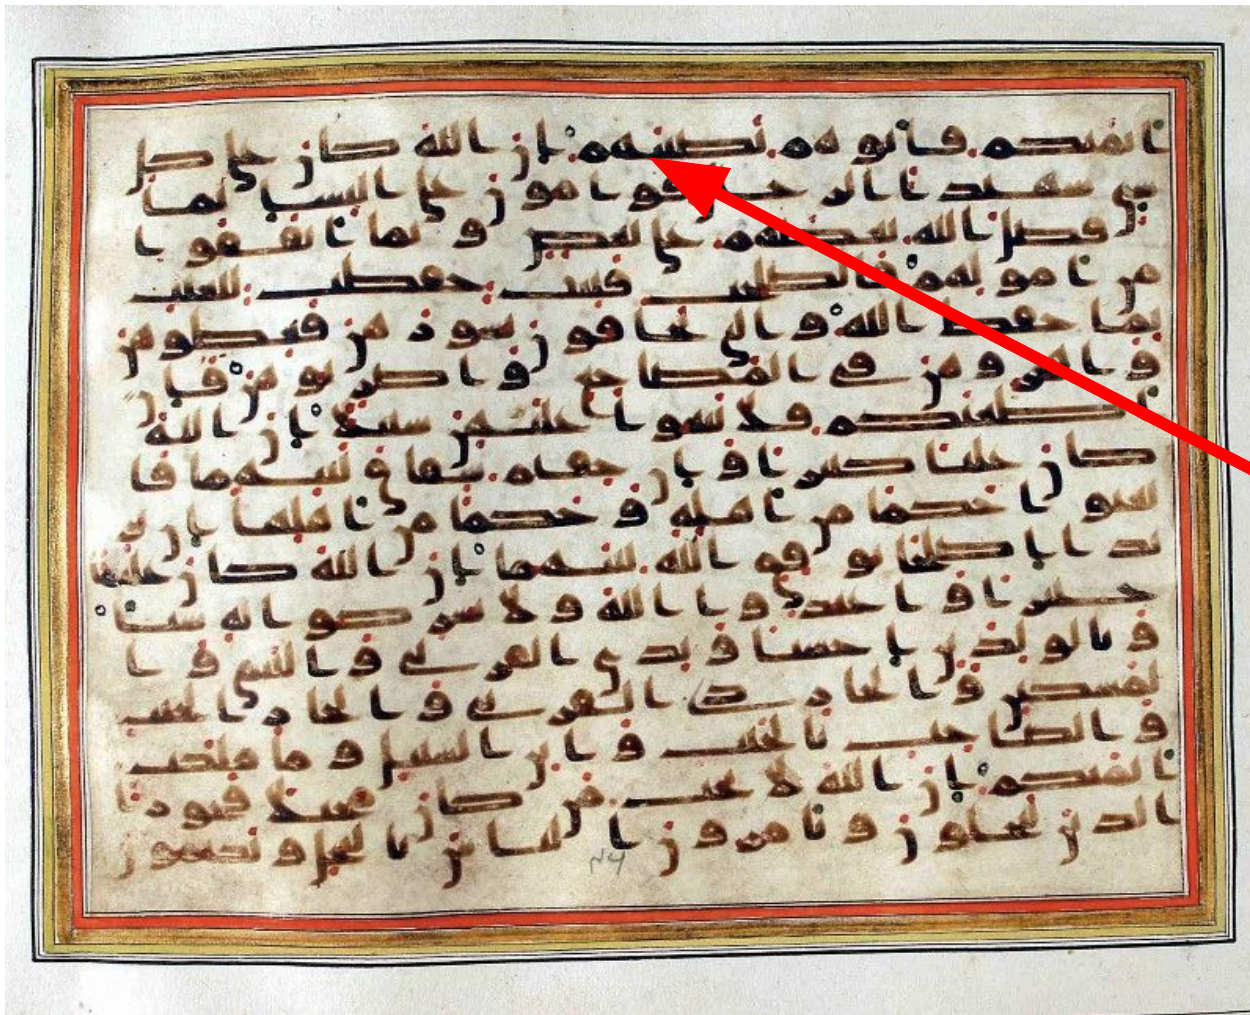 ايمنكم فاتوهم نصيبهم ان الله كان على كل
شي شهيدا الرجال قومون على النسا بما
فضل الله بعضهم على بعض وبما انفقوا
من امولهم فالصلحت قنتت حفظت للغيب
بما حفظ الله والتي تخافون نشوزهن فعظوهن
واهجروهن في المضاجع واضربوهن فان
اطعنكم فلا تبغوا عليهن سبيلا ان الله
كان عليا كبيرا وان خفتم شقاق بينهما فا
بعثوا حكما من اهله وحكما من اهلها ان ير
يدا اصلحا يوفق الله بينهما ان الله كان عليما
خبيرا واعبدوا الله ولا تشركوا به شيا
وبالولدين احسنا وبذي القربى واليتمى وا
لمسكين والجار ذي القربى والجار الجنب
والصاحب بالجنب وابن السبيل وما ملكت
ايمنكم ان الله لا يحب من كان مختلا فخورا
الذين يبخلون ويامرون الناس بالبخل ويكتمون